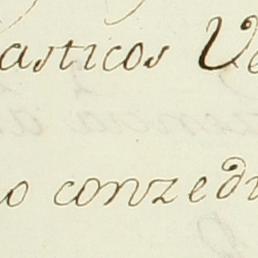 asticos Ve
o conzedi